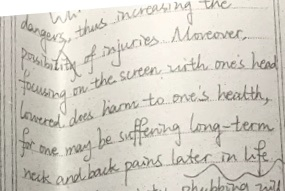 Whi
dangers, thus increasing the
possibility of injuries. Moreover,
focusing on the screen with one's head
lowered does harm to one's health,
for one may be suffering long-term
neck and back pains later in life
phubbing will